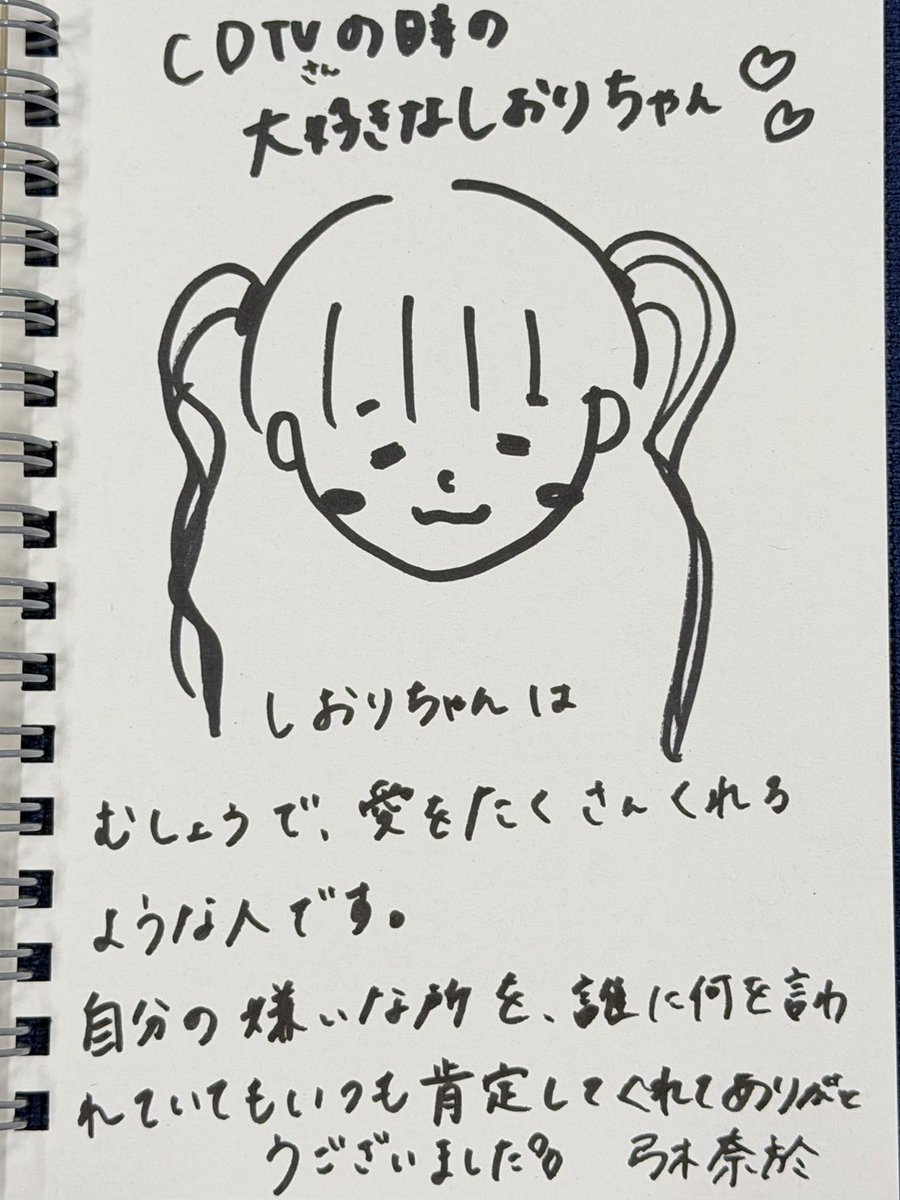 CDTVの時の
さん
大好きなしおりちゃん♡♡
しおりちゃんは
むしょうで、愛をたくさんくれる
ような人です。
自分の嫌いな所を、誰に何を言わ
れていてもいつも肯定してくれてありがと
うございました。 弓木奈於